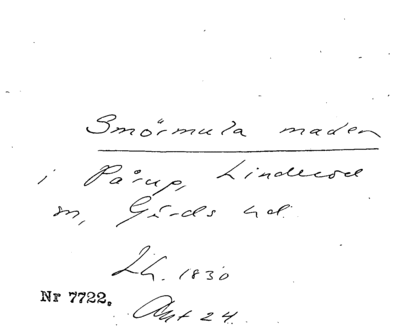 Smörmula maden
i Pårup, Linderöd
sn, Gärds hd.
Lh. 1830
Nr 7722. Akt 24